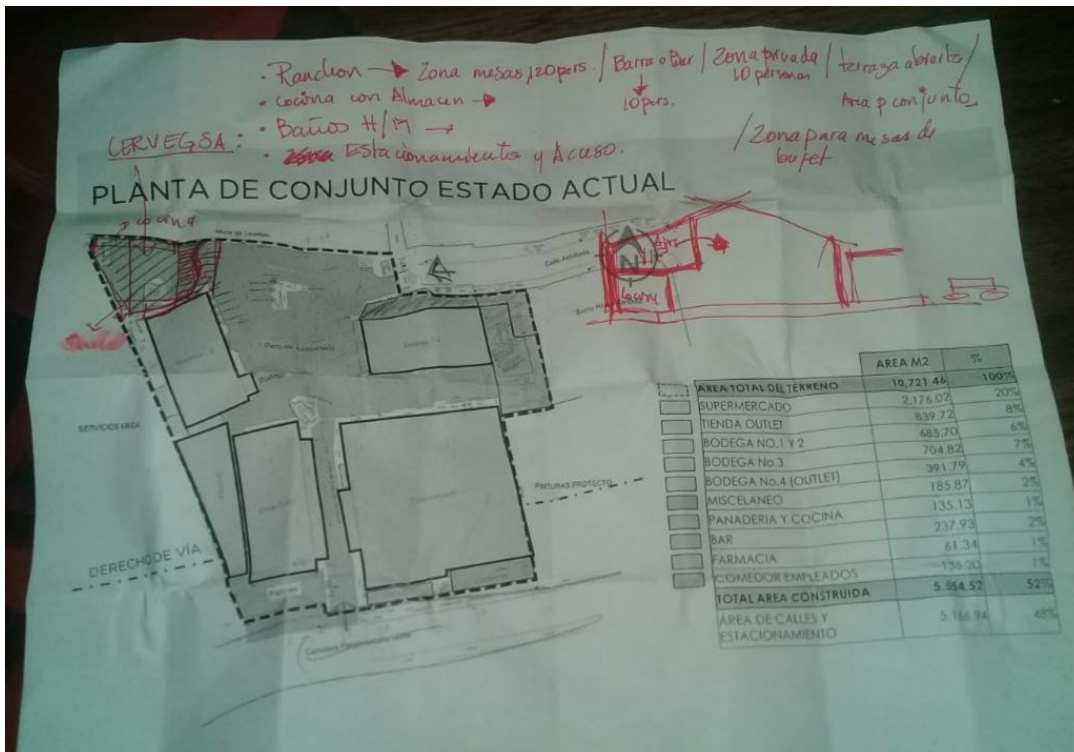 • Ranchon → Zona mesas 120 pers. / Barra o Bar / Zona privada / terraza abierta /
10 pers.
10 personas
Area p conjunto
• Cocina con Almacen →
• Baños H/M →
/ Zona para mesas de bufet
CERVEGSA:
• Estacionamiento y Acceso.
PLANTA DE CONJUNTO ESTADO ACTUAL
cocina
Calle Asfaltada
N
SERVICIOS MESA
PINTURAS PROTECTO
DERECHO DE VÍA
AREA M2 %
AREA TOTAL DEL TERRENO 10,721.46 100%
SUPERMERCADO 2,176.02 20%
TIENDA OUTLET 839.72 8%
BODEGA NO.1 Y 2 685.70 6%
BODEGA No.3 704.82 7%
BODEGA No.4 (OUTLET) 391.79 4%
MISCELANEO 185.87 2%
PANADERIA Y COCINA 135.13 1%
BAR 237.93 2%
FARMACIA 61.34 1%
COMEDOR EMPLEADOS 136.20 1%
TOTAL AREA CONSTRUIDA 5,554.52 52%
AREA DE CALLES Y ESTACIONAMIENTO 5,166.94 48%